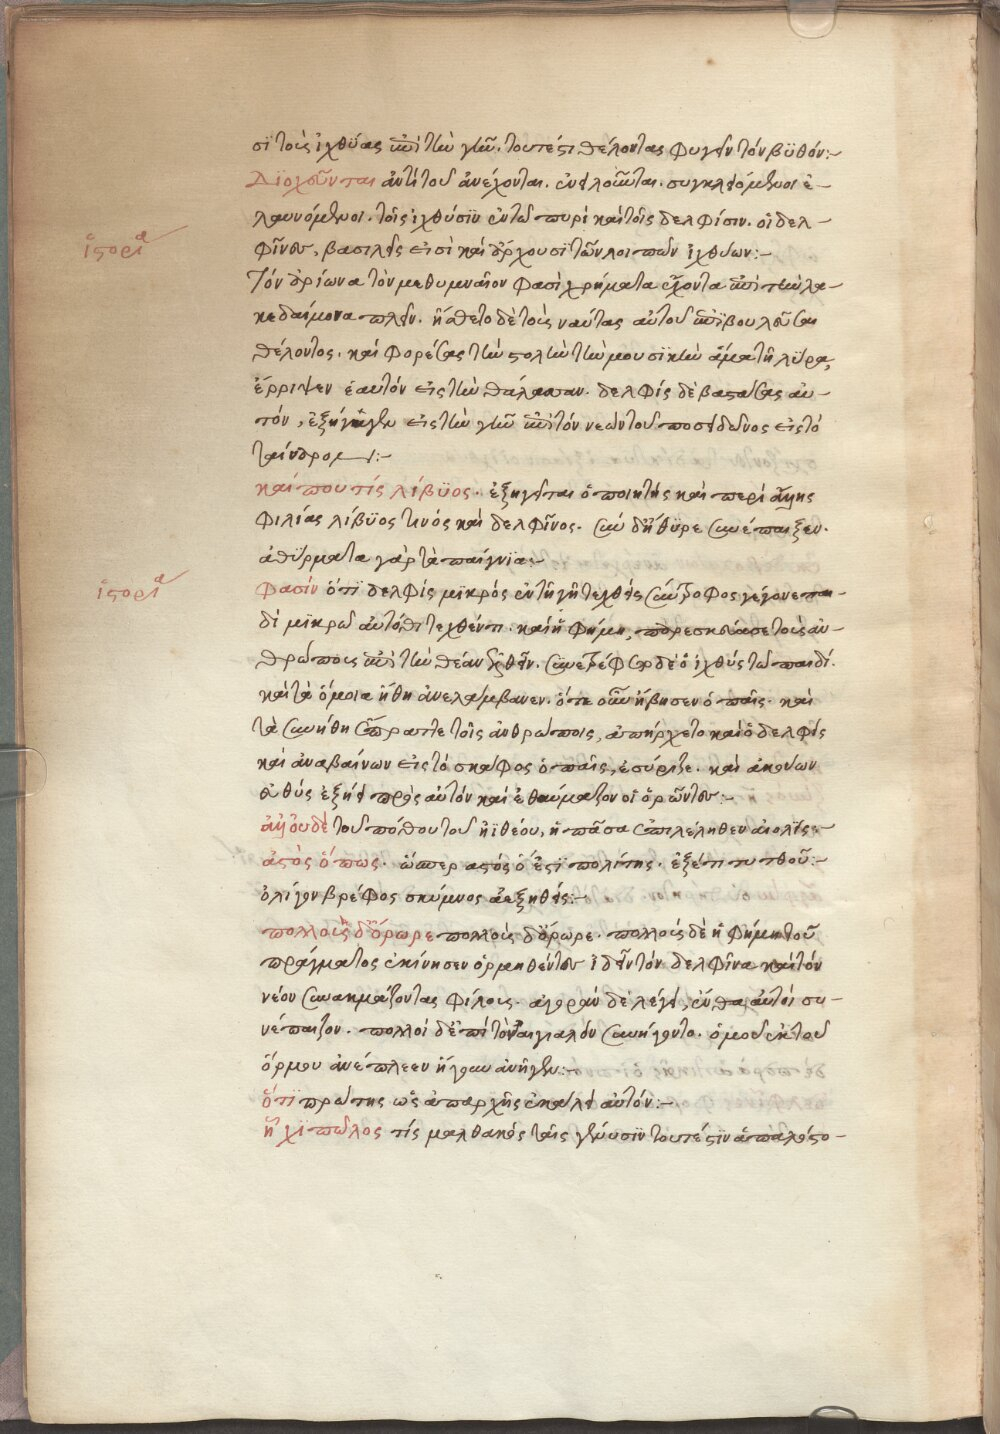 σϊ τοὺς ἰχθύας ἐπὶ τὴν γῆν. τουτέστι θέλοντας φυγεῖν τὸν βϋθόν:-
Διοχοῦνται ἀντὶ τοῦ ἀνέχονται. συγκλειόμενοι ἐ-
λαυνόμενοι. τοῖς ἰχθύσϊν ἐν τῶ πυρὶ καὶ τοῖς δελφίσιν. οἱ δελ-
ἱστορία
φῖνες, βασιλεῖς εἰσὶ καὶ ἄρχουσι τῶν λοιπῶν ἰχθύων:-
Τὸν ἀρίωνα τὸν μεθυμναῖον φασὶ χρήματα ἔχοντα ἐπὶ τὴν λα-
κεδαίμονα πλεῖν. ἤσθετο δὲ τοὺς ναύτας αὐτοῦ ἐπϊβουλεῦσαι
θέλοντας. καὶ φορέσας τὴν στολὴν τὴν μουσϊκὴν ἅμα τῆ λύρα,
ἔρριψεν ἑαυτὸν εἰς τὴν θάλασσαν. δελφὶς δὲ βαστάσας αυ-
τὸν, ἐξήγαγεν εἰς τὴν γῆν ἐπὶ τὸν νεὼν τοῦ ποσειδῶνος εἰς τὸ
ταίναρον:-
καί που τίς λίβϋος. ἐξηγεῖται ὁ ποιητὴς καὶ περὶ ἄλλης
φιλίας λίβϋος τινὸς καὶ δελφῖνος. σὺν δ' ἤθϋρε συνέπαιξεν.
ἀθύρματα γὰρ τὰ παίγνϊα:-
ἱστορία
φασὶν ὅτϊ δελφὶς μϊκρὸς ἐν τῆ γῆ τεχθεὶς σύντροφος γέγονε παι-
δὶ μϊκρῶ αὐτόθι τεχθέντι. καὶ ἡ φήμη, παρεσκεύασε τοὺς ἀν-
θρώπους ἐπὶ τὴν θέαν ἐλθεῖν. συνετρέφετο δὲ ὁ ἰχθὺς τῶ παιδί.
καὶ τὰ ὅμοια ἤθη ἀνελάμβανεν. ὅτε οὖν ἥβησεν ὁ παῖς. καὶ
τὰ συνήθη ἔπραττε τοῖς ἀνθρώποις, ἀπήρχετο καὶ ὁ δελφὶς
καὶ ἀναβαίνων εἰς τὸ σκάφος ὁ παῖς, ἐσύριζε. καὶ ἀκούων
εὐθὺς ἐξήει πρὸς αὐτὸν καὶ ἐθαύμαζον οἱ ὁρῶντες:-
ἀλλ' οὐδὲ τοῦ πόθου τοῦ ἠϊθέου, ἡ πᾶσα ἐπιλέληθεν αἰολΐς:-
ἀστὸς ὅπως. ὥσπερ ἀστὸς ὅ ἐστϊ πολίτης. ἐξέτι τυτθοῦ:-
ὀλίγον βρέφος σκύμνος ἀεξηθείς:-
πολλοὺς δ' ὄρωρε πολλοὺς δ' ὄρωρε. πολλοὺς δὲ ἡ φήμη τοῦ
πράγματος ἐκίνησεν ὁρμηθέντες ἰδεῖν τὸν δελφῖνα καὶ τὸν
νέον συνακμάζοντας φίλους. ἀγορὰν δὲ λέγει, ἔνθα αὐτοὶ συ-
νέπαιζον. πολλοὶ δὲ ἐπὶ τὸν αἰγιαλὸν συνήγοντο. ὁμοῦ ἐκ τοῦ
ὅρμου ἀνέπλεεν ἤγουν ἀνῆγεν:-
ὅτϊ πρώτης ὡς ἀπαρχῆς ἐκάλει αὐτόν:-
ἦ χϊ πῶλος τίς μαλθακὸς ταῖς γένυσϊν τουτέστϊν ἁπαλόστο-